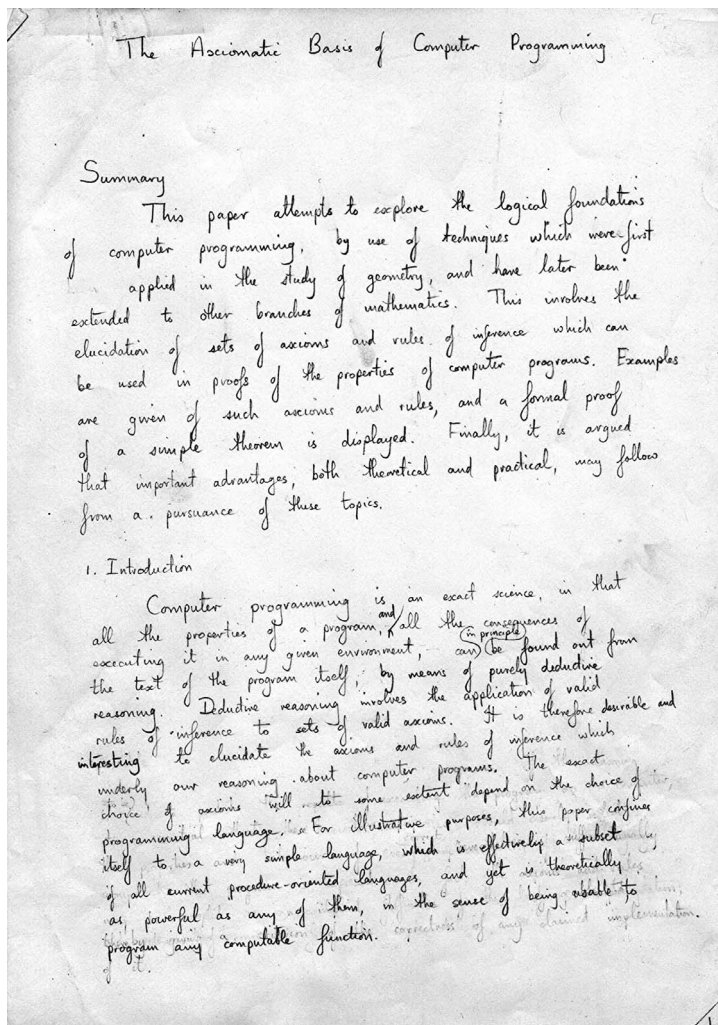 The Axciomatic Basis of Computer Programming
Summary
This paper attempts to explore the logical foundations
of computer programming, by use of techniques which were first
applied in the study of geometry, and have later been
extended to other branches of mathematics. This involves the
elucidation of sets of axioms and rules of inference which can
be used in proofs of the properties of computer programs. Examples
are given of such axioms and rules, and a formal proof
of a simple theorem is displayed. Finally, it is argued
that important advantages, both theoretical and practical, may follow
from a pursuance of these topics.
1. Introduction
Computer programming is an exact science, in that
all the properties of a program, and all the consequences of
executing it in any given environment, can in principle be found out from
the text of the program itself, by means of purely deductive
reasoning. Deductive reasoning involves the application of valid
rules of inference to sets of valid axioms. It is therefore desirable and
interesting to elucidate the axioms and rules of inference which
underly our reasoning about computer programs. The exact
choice of axioms will to some extent depend on the choice of
programming language. For illustrative purposes, this paper confines
itself to a very simple language, which is effectively a subset
of all current procedure-oriented languages, and yet is theoretically
as powerful as any of them, in the sense of being usable to
program any computable function.
correctness of any claimed implementation.
of it.